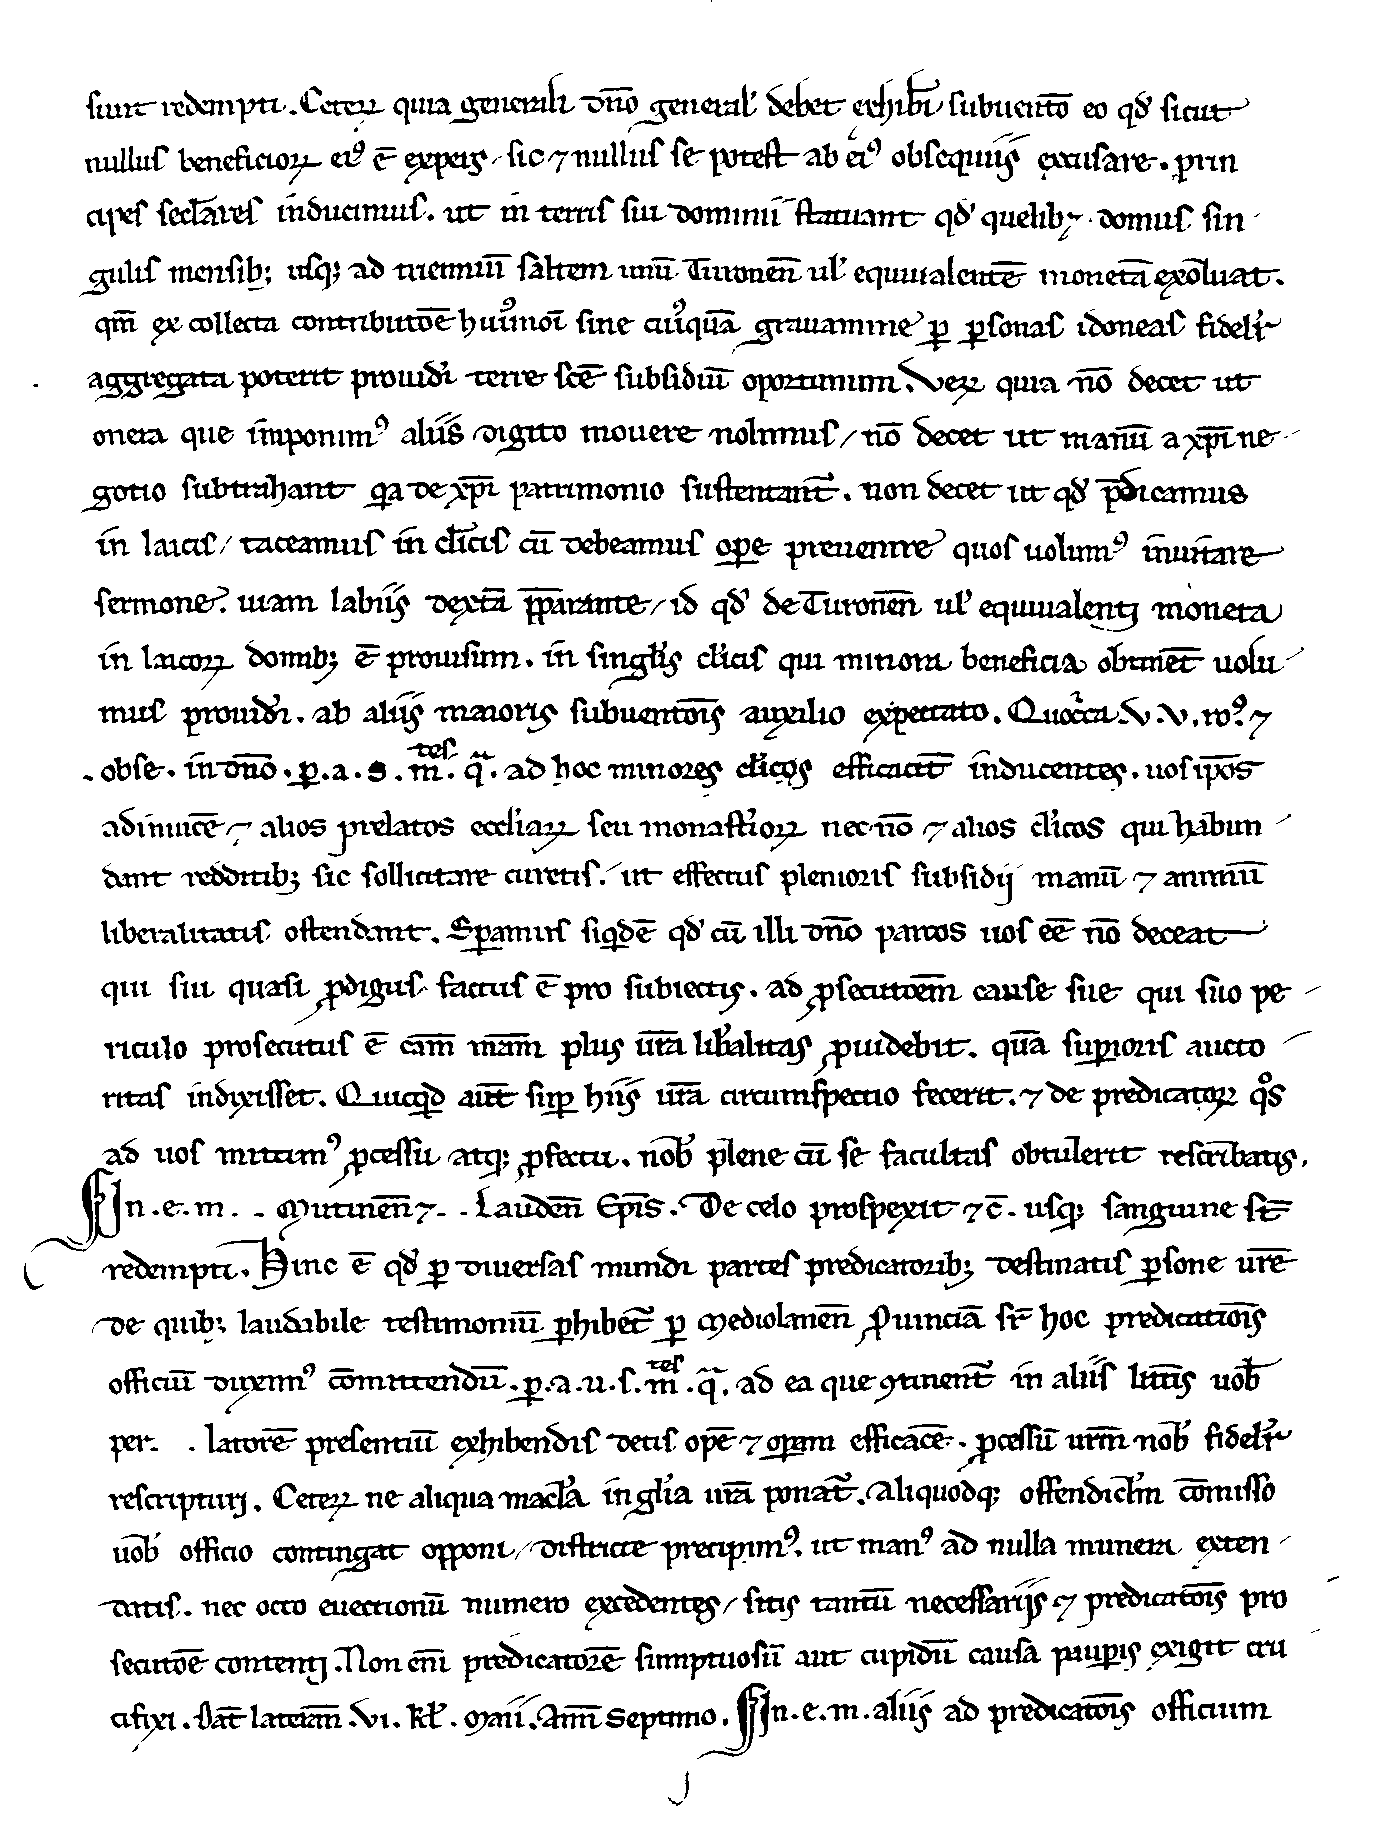 sunt redempti. Ceteꝝ quia generali dn̄o general' debet exhib'i subuentō eo qd' sicut
nullus beneficioꝝ eiꝰ ē expers, sic ⁊ nullus se potest ab eiꝰ obsequiis excusare. prin
cipes sec̄lares inducimus. ut in terris sui dominii statuant qd' quelibꝫ domus sin
gulis mensibꝫ usqꝫ ad trienniū saltem unū Turonen̄ ul' equiualentē monetā exoluat.
qm̄ ex collecta contributōe huiꝰmōi sine cuiꝰquā grauamine ꝑ ꝑsonas idoneas fidelr̄
aggregata poterit prouid'i terre sc̄e subsidiū oportunum. Veꝝ quia nō decet ut
onera que imponimꝰ aliis digito mouere nolimus / nō decet ut manū a xp̄i ne
gotio subtrahant qͥ a de xp̄i patrimonio sustentant᷑. non decet ut qd' p̄dicamus
in laicis / taceamus in cl'icis cū debeamus oꝑe preuenire quos uolumꝰ inuitare
sermone. uiam labiis dextā p̄parante / id qd' de Turonen̄ ul' equiualenti moneta
in laicoꝝ domibꝫ ē prouisum. in singl'is cl'icis qui minora beneficia obtinēt uolu
mus prouid'i. ab aliis maioris subuentōis auxilio expectato. Quocᷓca. V. V. roꝰ. ⁊
obse. in dn̄o. ꝑ. a. s. m̄tes. q̄. ad hoc minores cl'icos efficacit᷑ inducentes. uos ip̄os
adinuicē ⁊ alios prelatos eccl'iaꝝ seu monast'ioꝝ nec nō ⁊ alios cl'icos qui habun
dant redditibꝫ sic sollicitare curetis. ut effectus plenioris subsidij manū ⁊ animū
liberalitatis ostendant. Sꝑamus siqͥdē qd' cū illi dn̄o parcos uos eē nō deceat
qui sui quasi ꝓdigus factus ē pro subiectis. ad ꝓsecutōem̄ cause sue qui suo pe
riculo prosecutus ē cam̄ n̄ram plus ur̄a lib'alitas ꝓuidebit. quā suꝑioris aucto
ritas indixisset. Quicqͥd aūt suꝑ hiis ur̄a circumspectio fecerit. ⁊ de predicatoꝝ qͦs
ad uos mittimꝰ ꝓcessu atqꝫ ꝓfectu. nob' plene cū se facultas obtulerit rescribatis.
In. e. m. . . Mutinen̄ ⁊ . . Lauden̄ Ep̄is. De celo prospexit ⁊c̄. usqꝫ sanguine st̄
redempti. Hinc ē qd' ꝑ diuersas mundi partes predicatoribꝫ destinatis ꝑsone ur̄e
de quibꝫ laudabile testimoniū ꝑhibet᷑ ꝑ Mediolanen̄ ꝓuinciā sr̄ hoc predicatiōis
officiū duximꝰ cōmittendū. ꝑ. a. u. s. m̄tes. q̄. ad ea que ꝯtinent᷑ in aliis litt̄is uob'
per. . latorē presentiū exhibendis detis opē ⁊ oꝑam efficacē. ꝓcessū ur̄m nob' fidelr̄
rescripturi. Ceteꝝ ne aliqua macl'a in gl'ia ur̄a ponat᷑. Aliquodqꝫ offendicl'm cōmisso
uob' officio contingat opponi / districte precipimꝰ. ut manꝰ ad nulla munera exten
datis. nec octo euectionū numero excedentes / sitis tantū necessariis ⁊ predicatōis pro
secutōe contenti. Non em̄ predicatorē sumptuosū aut cupidū causa pauꝑis exigit cru
cifixi. Dat̄ lateran̄. VI. kl'. Maii. Ann̄ Septimo. In. e. m. aliis ad predicatōis officium